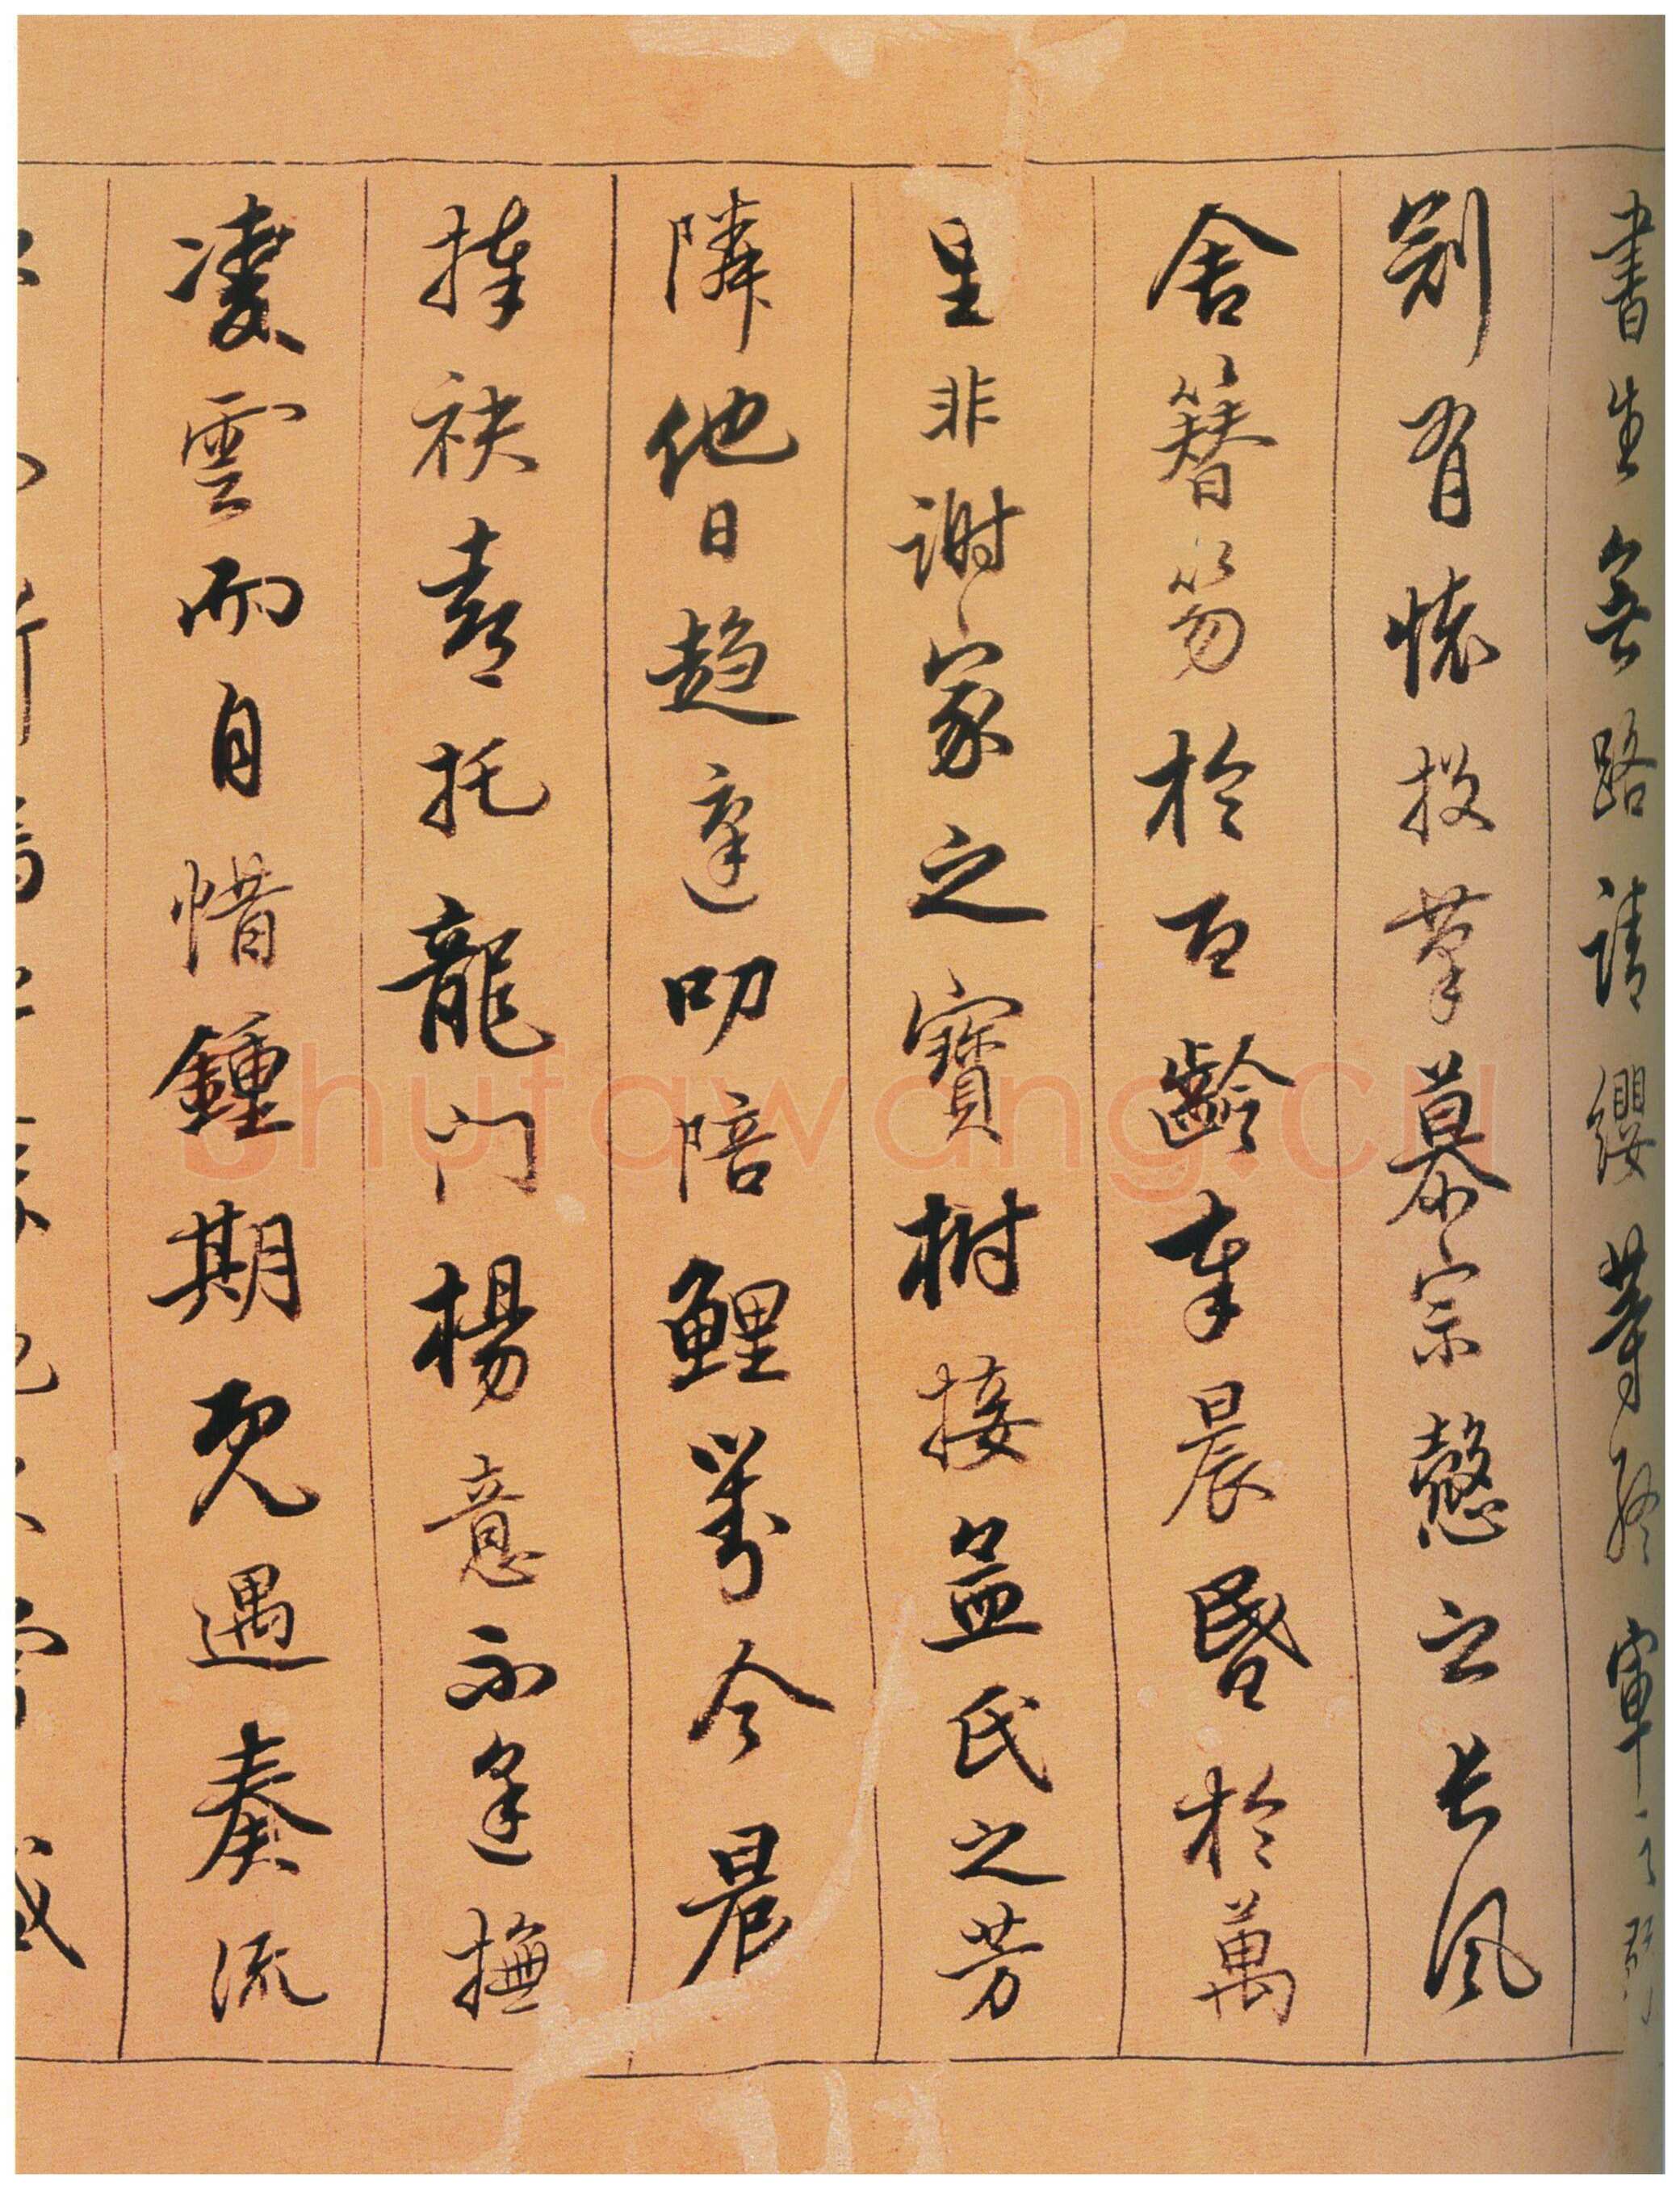 書生無路請纓等終軍之弱
冠有懷投筆慕宗愨之長風
舍簪笏於百齡奉晨昬於萬
里非謝家之寶樹接孟氏之芳
隣他日趨庭叨陪鯉對今晨
捧袂喜托龍門楊意不逢撫
凌雲而自惜鍾期既遇奏流
shufawang.cn